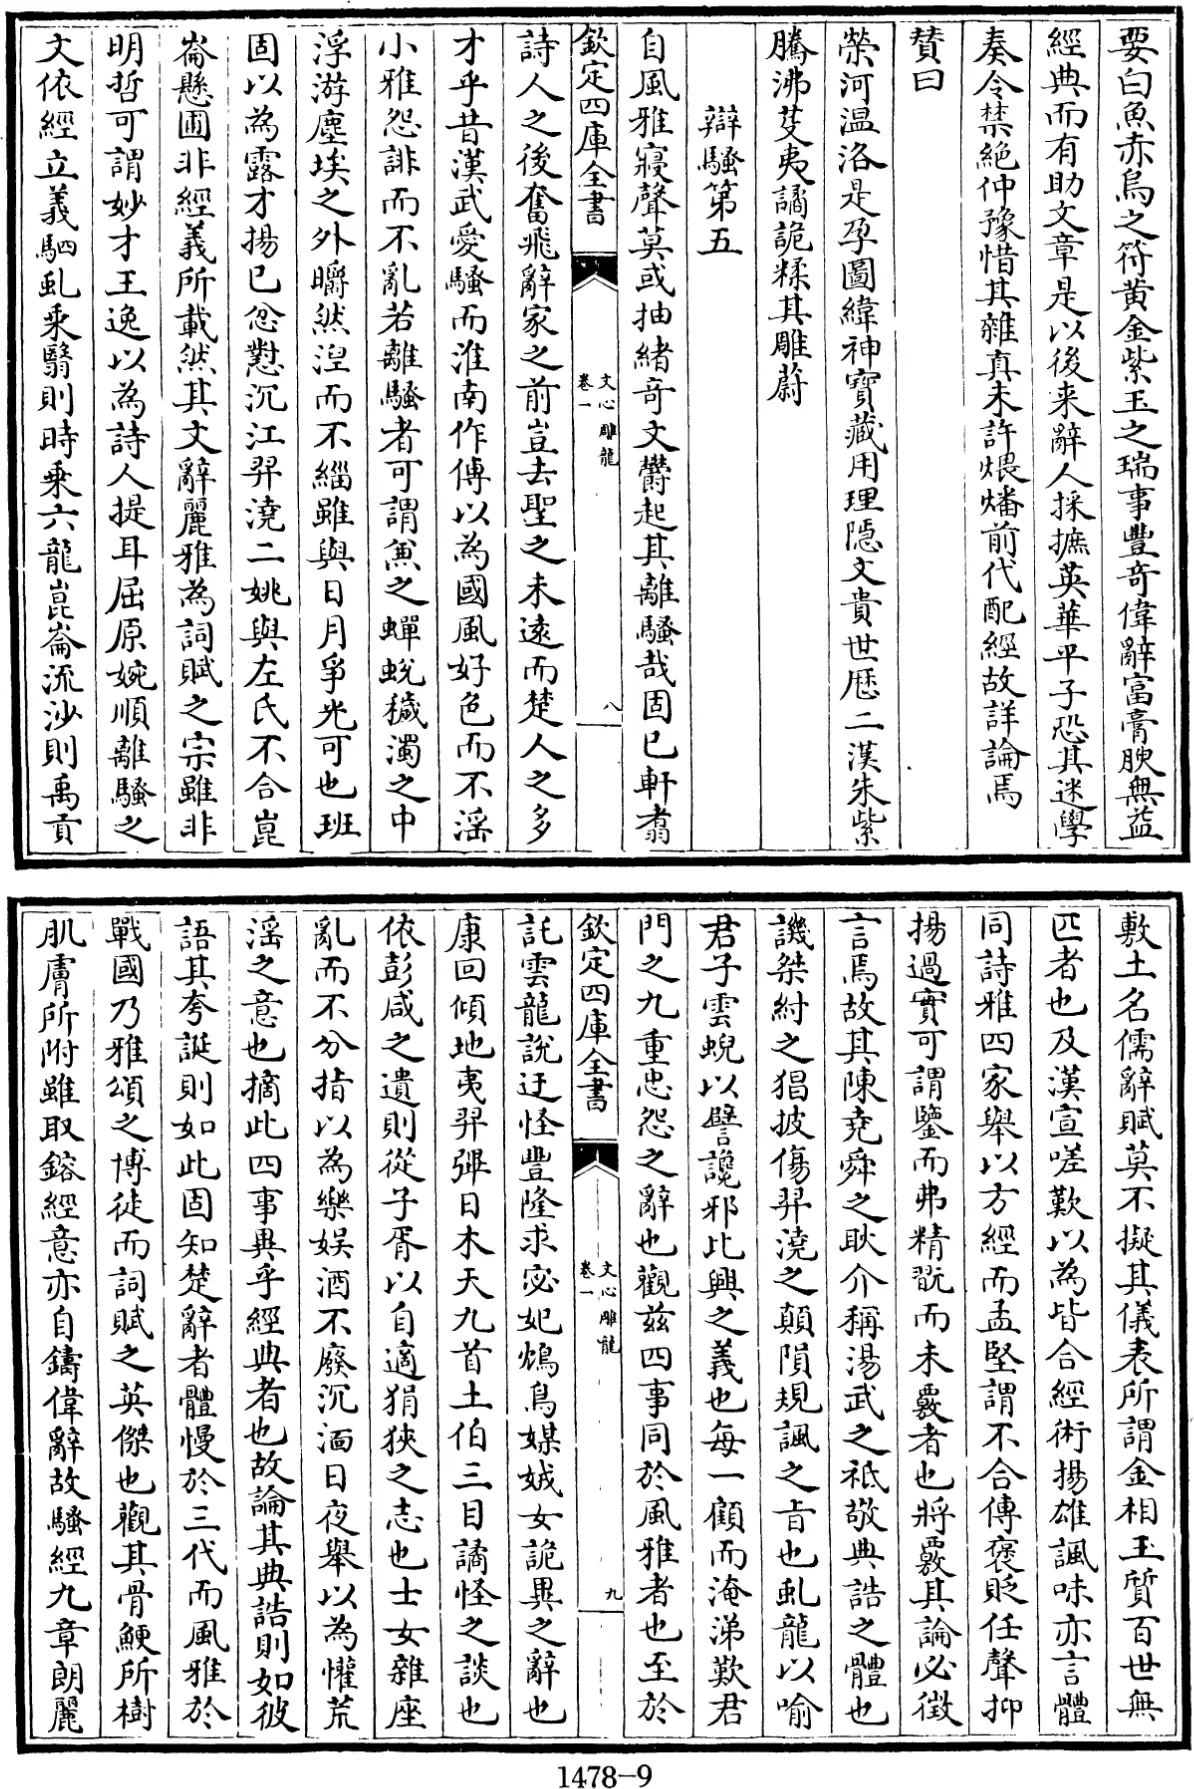 要白魚赤烏之符黄金紫玉之瑞事豐竒偉辭富膏腴無益
經典而有助文章是以後来辭人採摭英華平子恐其迷學
奏令禁絶仲豫惜其雜真未許煨燔前代配經故詳論焉
賛曰
榮河温洛是孕圖緯神寶藏用理隠文貴世厯二漢朱紫
騰沸芟夷譎詭糅其雕蔚
辯騷第五
自風雅寢聲莫或抽緒竒文欝起其離騷哉固已軒翥
欽定四庫全書
文心雕龍
卷一
八
詩人之後奮飛辭家之前豈去聖之未逺而楚人之多
才乎昔漢武愛騷而淮南作傳以為國風好色而不淫
小雅怨誹而不亂若離騷者可謂兼之蟬蛻穢濁之中
浮游塵埃之外皭然涅而不緇雖與日月爭光可也班
固以為露才揚已忿懟沉江羿澆二姚與左氏不合崑
崙懸圃非經義所載然其文辭麗雅為詞賦之宗雖非
明哲可謂妙才王逸以為詩人提耳屈原婉順離騷之
文依經立義駟虬乘翳則時乘六龍崑崙流沙則禹貢
敷土名儒辭賦莫不擬其儀表所謂金相玉質百世無
匹者也及漢宣嗟歎以為皆合經術揚雄諷味亦言體
同詩雅四家舉以方經而孟堅謂不合傳褒貶任聲抑
揚過實可謂鑒而弗精翫而未覈者也將覈其論必徴
言焉故其陳堯舜之耿介稱湯武之祗敬典誥之體也
譏桀紂之猖披傷羿澆之顛隕規諷之旨也虬龍以喻
君子雲蜺以譬讒邪比興之義也每一顧而淹涕歎君
門之九重忠怨之辭也觀兹四事同於風雅者也至於
欽定四庫全書
文心雕龍
卷一
九
託雲龍說迂怪豐隆求宓妃鴆鳥媒娀女詭異之辭也
康回傾地夷羿彈日木天九首土伯三目譎怪之談也
依彭咸之遺則從子胥以自適狷狹之志也士女雜座
亂而不分指以為樂娱酒不廢沉湎日夜舉以為懽荒
淫之意也摘此四事異乎經典者也故論其典誥則如彼
語其夸誕則如此固知楚辭者體慢於三代而風雅於
戰國乃雅頌之博徒而詞賦之英傑也觀其骨鯁所樹
肌膚所附雖取鎔經意亦自鑄偉辭故騷經九章朗麗
1478-9